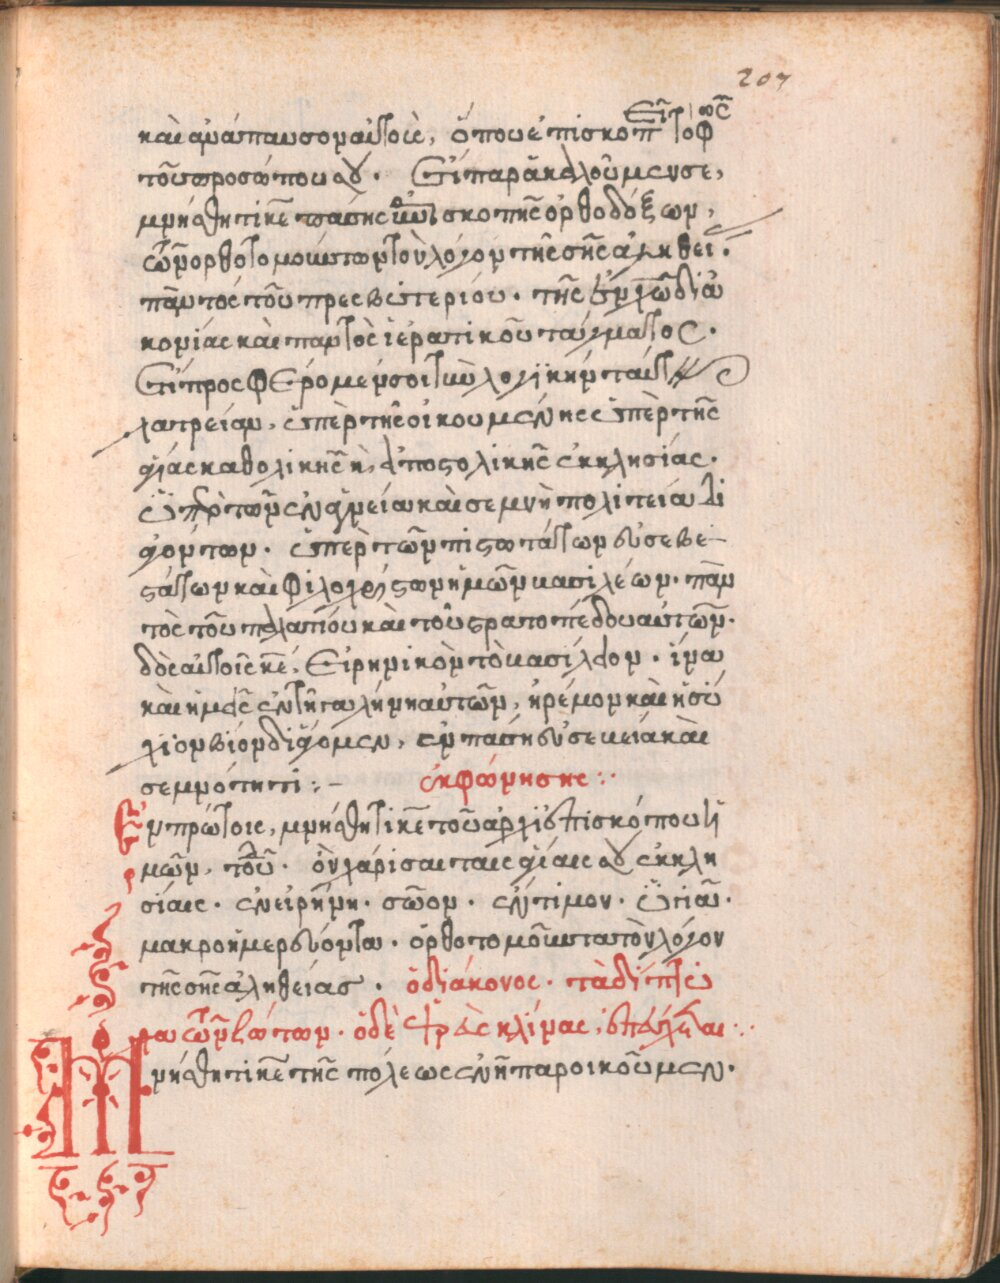 207
καὶ ἀνάπαυσον αὐτοὺς, ὅπου ἐπισκοπεῖ τὸ φῶς
τοῦ προσώπου σου. Ἔτι παρακαλοῦμέν σε,
μνήσθητι κε πάσης ἐπισκοπῆς ὀρθοδόξων,
τῶν ὀρθοτομούντων τὸν λόγον τῆς σῆς ἀληθεί.
παντὸς τοῦ πρεσβυτερίου. τῆς ἐν χω δια
κονίας καὶ παντὸς ἱερατικοῦ τάγματος.
Ἔτι προσφέρομέν σοι τὴν λογικὴν ταύτην
λατρείαν, ὑπὲρ τῆς οἰκουμένης ὑπὲρ τῆς
ἁγίας καθολικῆς κ, ἀποστολικῆς ἐκκλησίας.
Ὑπὲρ τῶν ἐν ἁγνείᾳ καὶ σεμνῇ πολιτείᾳ δι
αγόντων. ὑπὲρ τῶν πιστωτάτων εὐσεβε
στάτων καὶ φιλοχρίστων ἡμῶν βασιλέων. παν
τὸς τοῦ παλατίου καὶ τοῦ στρατοπέδου αὐτῶν.
δὸς αὐτοῖς κε, εἰρηνικὸν τὸ βασίλειον. ἵνα
καὶ ἡμεῖς ἐν τῇ γαλήνῃ αὐτῶν, ἠρέμον καὶ ἡσύ
χιον βίον διάγομεν, ἐν πάσῃ εὐσεβείᾳ καὶ
σεμνότητι :- ἐκφώνησης :·
Ἐν πρώτοις, μνήσθητι κε τοῦ ἀρχιεπισκόπου ἡ
μῶν, τοῦ δ. ὃν χάρισαι ταῖς ἁγίαις σου ἐκκλη
σίαις. ἐν εἰρήνῃ. σῶον. ἔντιμον. ὑγιᾶ.
μακροημερεύοντα. ὀρθοτομοῦντα τὸν λόγον
τῆς σῆς ἀληθείας. ὁ διάκονος. τὰ δίπτυ
χα τῶν ζώντων. ὁ δὲ ἱερεὺς κλίνας, ἐπεύχεται :·
Μνήσθητι κε τῆς πόλεως ἐν ᾗ παροικοῦμεν.